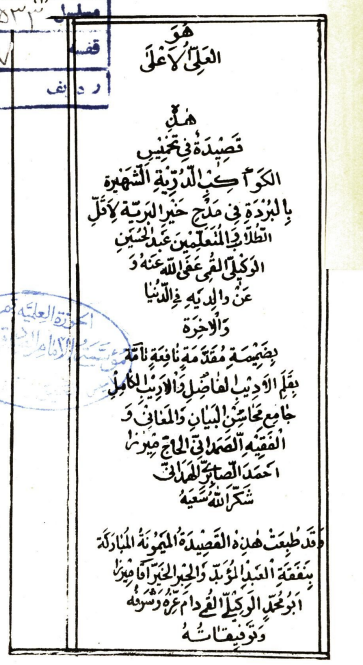 مسلسل
قفسه
ردیف
هُوَ
العَلِيُّ الأَعْلَى
هٰذِهِ
قَصِيدَةٌ فِي تَخْمِيسِ
الكَوَاكِبِ الدُّرِّيَّةِ الشَّهِيرَةِ
بِالبُرْدَةِ فِي مَدْحِ خَيْرِ البَرِيَّةِ لِأَقَلِّ
الطُّلَّابِ وَالمُتَعَلِّمِينَ عَبْدِ الحُسَيْنِ
الوَكِيلِي القُمِّي عَفَى اللّٰهُ عَنْهُ وَ
عَنْ وَالِدَيْهِ فِي الدُّنْيَا
وَالآخِرَةِ
بِضَمِيمَةِ مُقَدَّمَةٍ نَافِعَةٍ تَامَّةٍ
بِقَلَمِ الأَدِيبِ الفَاضِلِ وَالأَرِيبِ الكَامِلِ
جَامِعِ مَحَاسِنِ البَيَانِ وَالمَعَانِي وَ
الفَقِيهِ الصَّمَدَانِي الحَاج مِيرْزَا
أَحْمَدَ الصَّابِرِيِّ الهَمَدَانِي
شَكَرَ اللّٰهُ سَعْيَهُ
وَقَدْ طُبِعَتْ هٰذِهِ القَصِيدَةُ المَيْمُونَةُ المُبَارَكَةُ
بِنَفَقَةِ العَبْدِ المُؤَيَّدِ وَالحِبْرِ الخَيِّرِ آقَا مِيرْزَا
أَبُو مُحَمَّدٍ الوَكِيلِي القُمِي دَامَ عِزُّهُ وَشَرَفُهُ
وَتَوْفِيقَاتُهُ